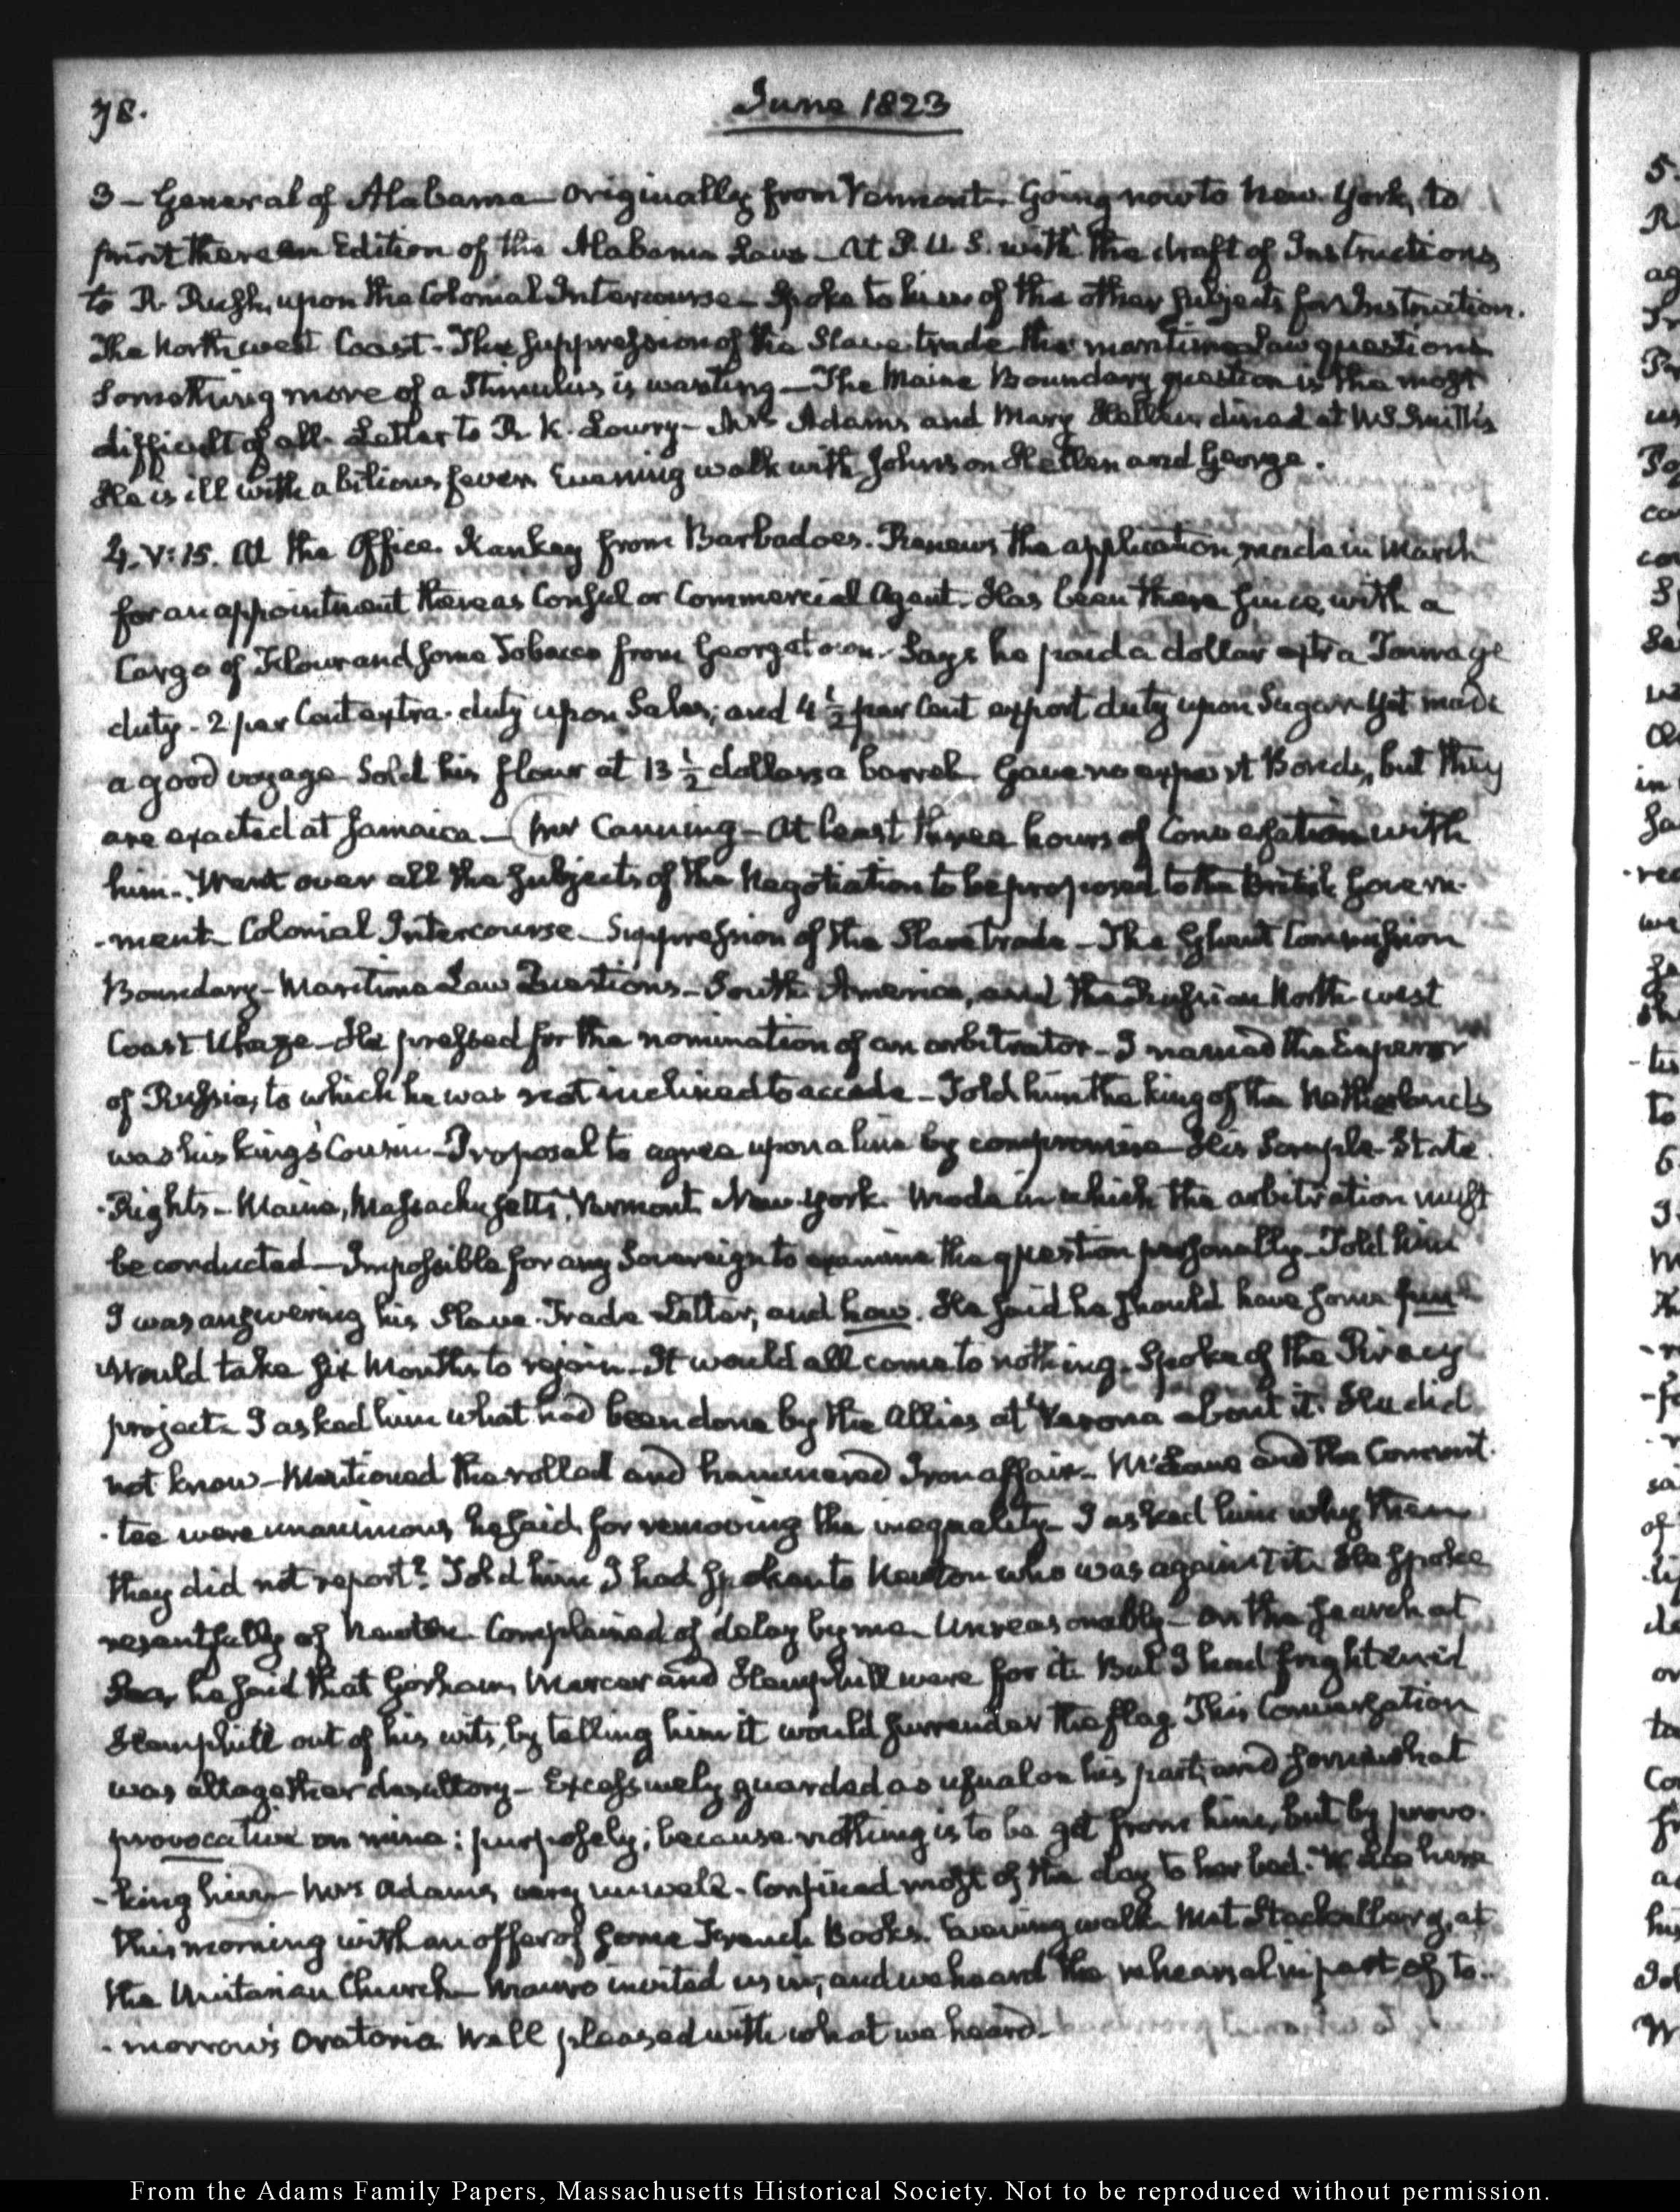 78.
June 1823
3 — General of Alabama — originally from Vermont. Going now to New York, to
print there an Edition of the Alabama Laws — At P. U. S. with the draft of Instructions
to R. Rush, upon the Colonial Intercourse — Spoke to him of the other subjects for Instruction.
The North west Coast — The suppression of the Slave trade the maritime Law questions
Something more of a stimulus is wanting — The Maine Boundary question is the most
difficult of all. Letter to R. K. Lowry — Mrs Adams and Mary Hellen dined at W. S. Smith's
He is ill with a bilious fever. Evening walk with Johnson Hellen and George.
4. V: 15. At the Office. Kankey from Barbadoes. Renews the application, made in March
for an appointment there as Consul or Commercial Agent. Has been there since, with a
Cargo of Flour and some Tobacco from Georgetown. Says he paid a dollar extra Tonnage
duty — 2 per Cent extra duty upon Sales; and 4 ½ per Cent export duty upon Sugar yet made
a good voyage. Sold his flour at 13 ½ dollars a barrel. Gave no export Bonds, but they
are exacted at Jamaica — Mr Canning — At least three hours of Conversation with
him. Went over all the subjects of the Negotiation to be proposed to the British Govern-
-ment. Colonial Intercourse — Suppression of the Slave trade — The Ghent Commission
Boundary — Maritime Law Questions — South America, and the Russian North west
Coast Ukaze — He pressed for the nomination of an arbitrator — I named the Emperor
of Russia; to which he was not inclined to accede — Told him the king of the Netherlands
was his king's Cousin — Proposal to agree upon a line by compromise — His Scruple — State
Rights — Maine, Massachusetts, Vermont. New York. Mode in which the arbitration must
be conducted — Impossible for any Sovereign to examine the question personally. Told him
I was answering his Slave-Trade Letter, and how. He said he should have some fun
Would take six Months to rejoin. It would all come to nothing. Spoke of the Piracy
project. I asked him what had been done by the Allies at Verona about it. He did
not know — Mentioned the rolled and hammered Iron affair. McLane and the Commit-
-tee were unanimous he said, for removing the inequality. I asked him why then
they did not report? Told him, I had spoken to Newton who was against it. He spoke
resentfully of Newton. Complained of delay by me. Unreasonably — On the search at
Sea, he said that Gorham, Mercer and Hemphill were for it. But I had frightened
Hemphill out of his wits, by telling him it would surrender the flag. This Conversation
was altogether desultory — Excessively guarded as usual on his part; and somewhat
provocative on mine: purposely; because nothing is to be got from him, but by provo-
-king him — Mrs Adams, very unwell. Confined most of the day to her bed. here
this morning with an offer of some French Books. Evening walk. Met Stackelberg, at
the Unitarian Church — Mauro invited us in; and we heard the rehearsal in part of to-
-morrow's Oratorio. Well pleased with what we heard.
From the Adams Family Papers, Massachusetts Historical Society. Not to be reproduced without permission.